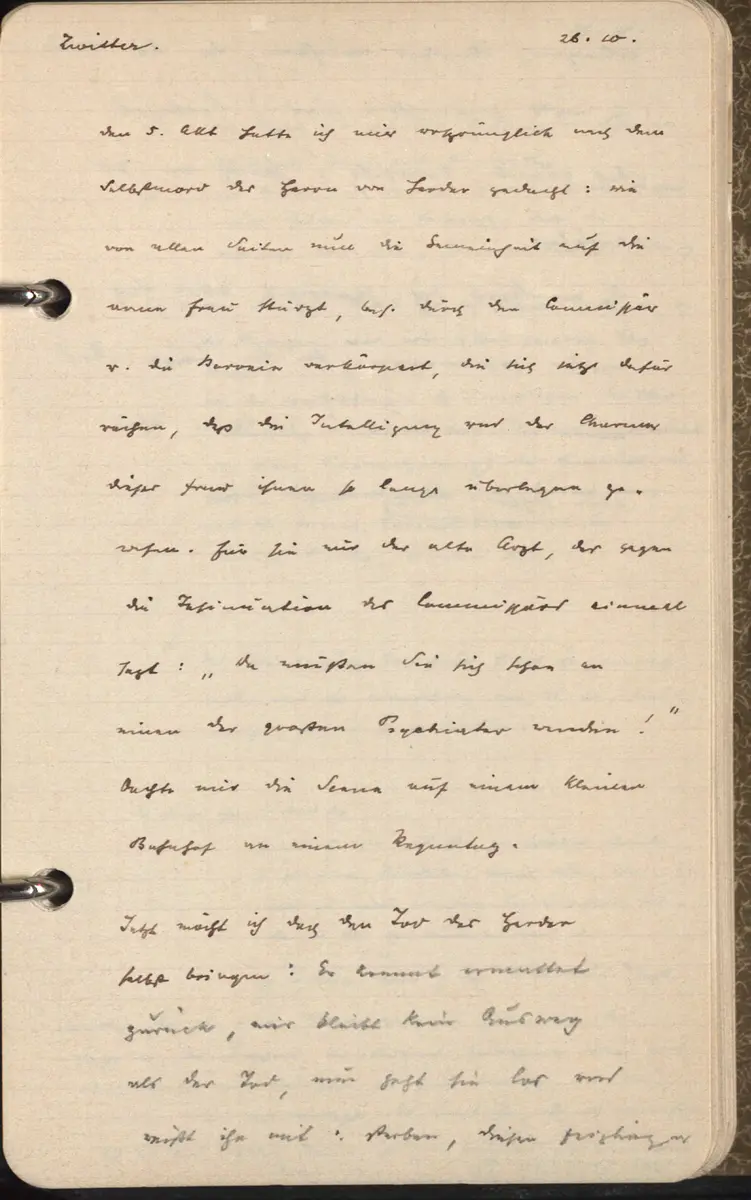 Zwitter. 26. 10.
den 5. Akt hatte ich mir ursprünglich nach dem
Selbstmord des Herrn von Herder gedacht: wie
von allen Seiten nun die Gemeinheit auf die
arme Frau stürzt, bes. durch den Commissär
u. die Baronin verkörpert, die sich jetzt dafür
rächen, daß die Intelligenz und der Charme
dieser Frau ihnen so lange überlegen ge-
wesen. Für sie nur der alte Arzt, der gegen
die Insinuation des Commissärs einmal
sagt: „da müßten Sie sich schon an
einen der großen Psychiater wenden!"
Dachte mir die Scene auf einem kleinen
Bahnhof an einem Regentag.
Jetzt möcht ich doch den Tod des Herder
selbst bringen: Er kommt ermattet
zurück, mir bleibt kein Ausweg
als der Tod, nun geht sie los und
reißt ihn mit: sterben, diesen